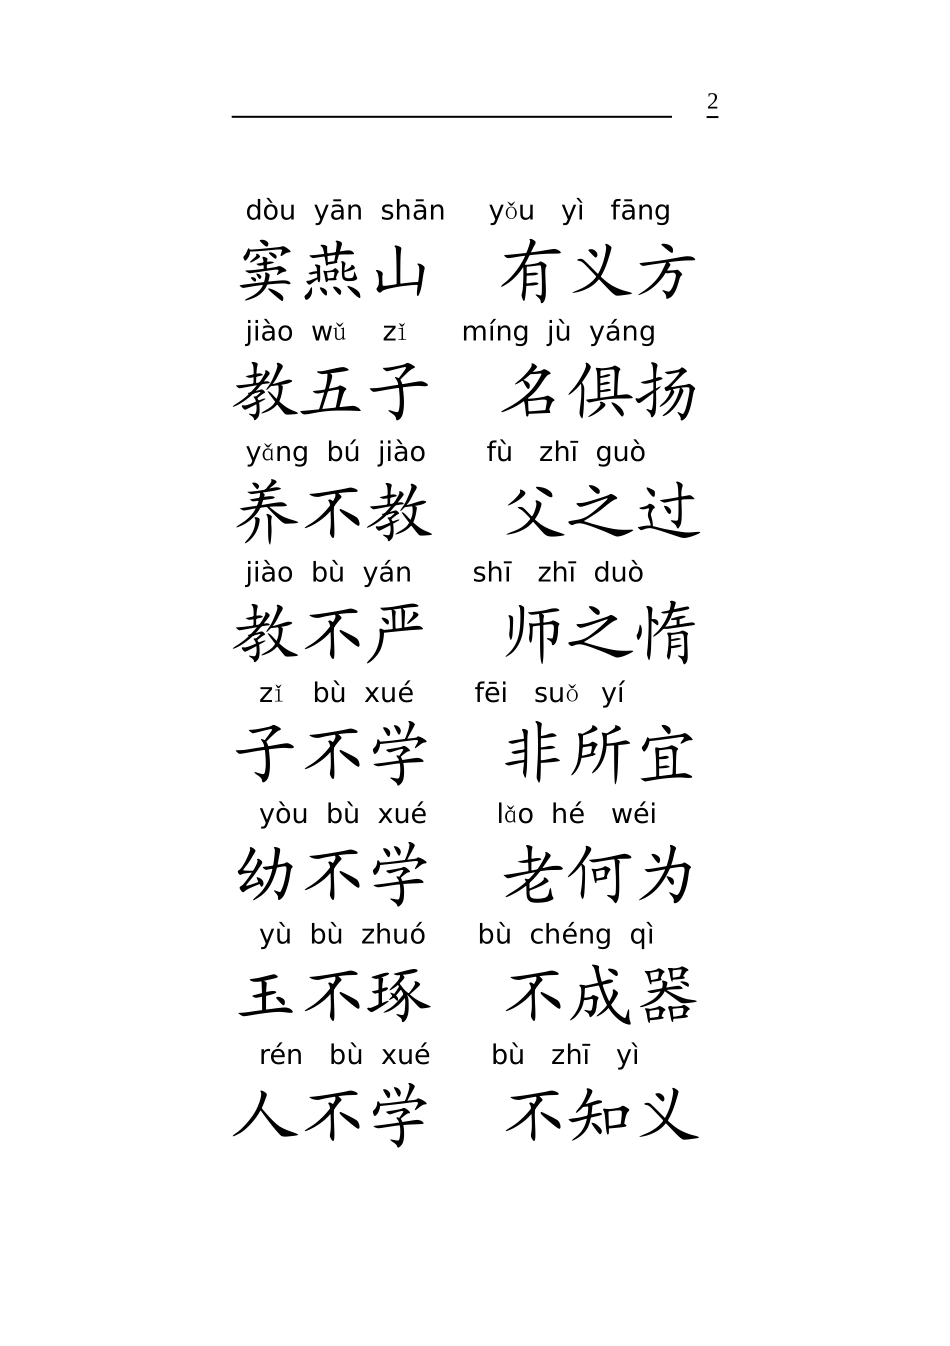 2
dòu yān shān yǒu yì fāng
窦燕山 有义方
jiào wǔ zǐ míng jù yáng
教五子 名俱扬
yǎng bú jiào fù zhī guò
养不教 父之过
jiào bù yán shī zhī duò
教不严 师之惰
zǐ bù xué fēi suǒ yí
子不学 非所宜
yòu bù xué lǎo hé wéi
幼不学 老何为
yù bù zhuó bù chéng qì
玉不琢 不成器
rén bù xué bù zhī yì
人不学 不知义